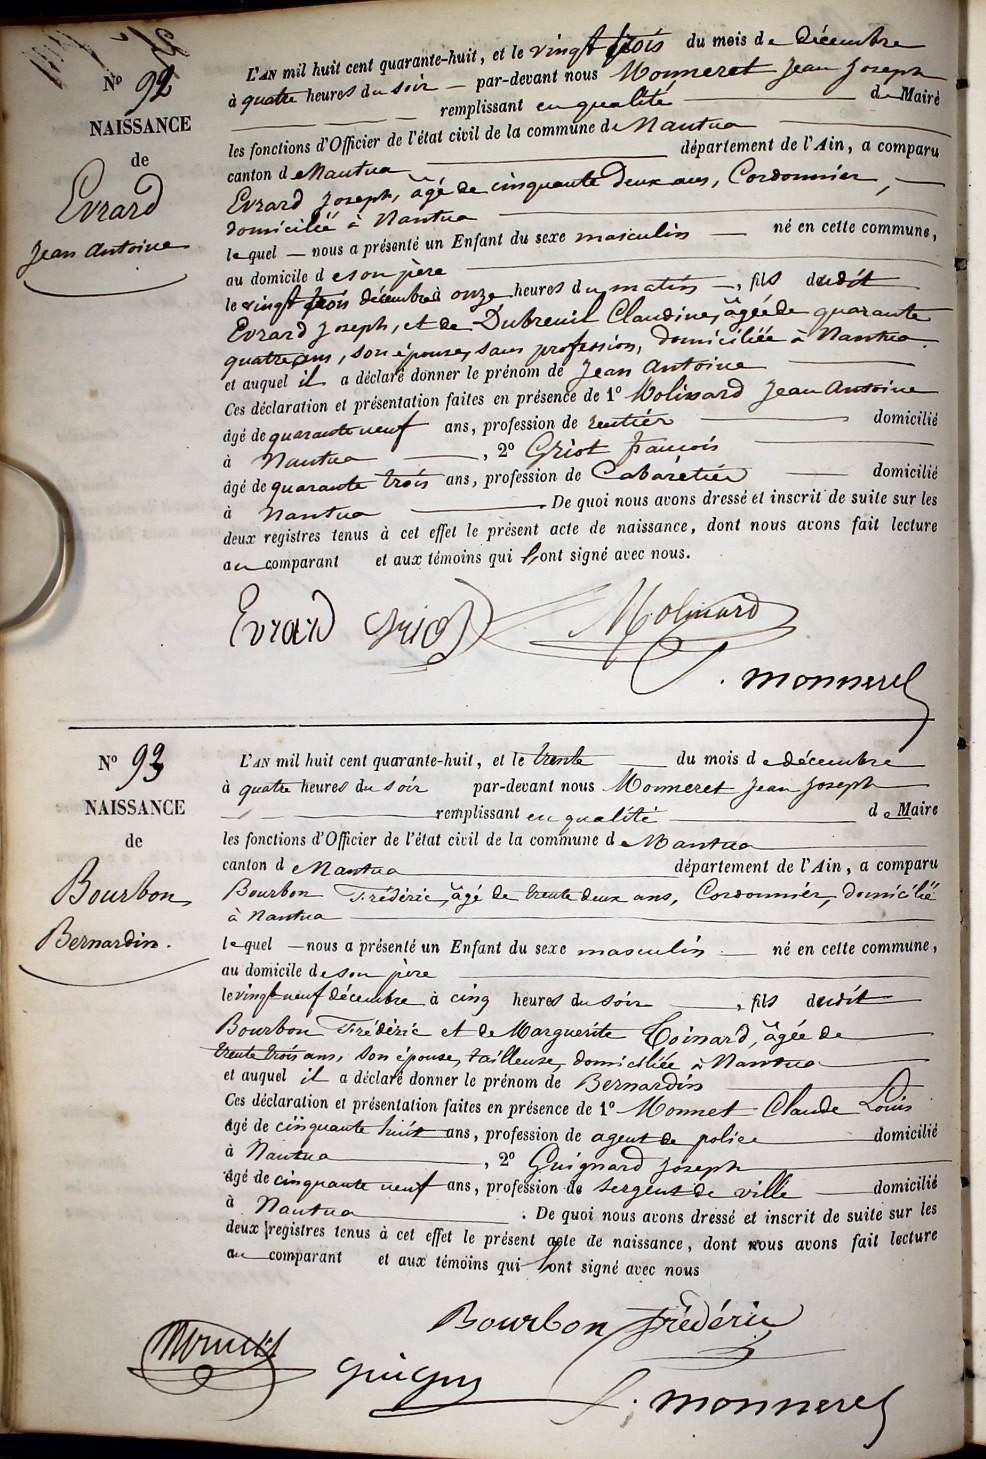 N° 92
NAISSANCE
de
Evrard
Jean Antoine
L'AN mil huit cent quarante-huit, et le vingt trois du mois de décembre
à quatre heures du soir — par-devant nous Monneret Jean Joseph
remplissant en qualité de Maire
les fonctions d'Officier de l'état civil de la commune de Nantua
canton de Nantua département de l'Ain, a comparu
Evrard Joseph, âgé de cinquante deux ans, Cordonnier,
domicilié à Nantua
lequel — nous a présenté un Enfant du sexe masculin — né en cette commune,
au domicile de son père
le vingt trois décembre à onze heures du matin —, fils dudit
Evrard Joseph, et de Dubreuil Claudine, âgée de quarante
quatre ans, son épouse, sans profession, domiciliée à Nantua.
et auquel il a déclaré donner le prénom de Jean Antoine
Ces déclaration et présentation faites en présence de 1° Molinard Jean Antoine
âgé de quarante neuf ans, profession de rentier domicilié
à Nantua —, 2° Griot françois
âgé de quarante trois ans, profession de Cabaretier domicilié
à Nantua . De quoi nous avons dressé et inscrit de suite sur les
deux registres tenus à cet effet le présent acte de naissance, dont nous avons fait lecture
au comparant et aux témoins qui l'ont signé avec nous.
Evrard Griot Molinard
J. monneret
N° 93
NAISSANCE
de
Bourbon
Bernardin.
L'AN mil huit cent quarante-huit, et le trente du mois de décembre
à quatre heures du soir par-devant nous Monneret Jean Joseph
remplissant en qualité de Maire
les fonctions d'Officier de l'état civil de la commune de Nantua
canton de Nantua département de l'Ain, a comparu
Bourbon Frédéric, âgé de trente deux ans, Cordonnier, domicilié
à Nantua
lequel — nous a présenté un Enfant du sexe masculin — né en cette commune,
au domicile de son père
le vingt neuf décembre à cinq heures du soir , fils dudit
Bourbon Frédéric et de Marguerite Coinard, âgée de
trente trois ans, son épouse, tailleuse, domiciliée à Nantua
et auquel il a déclaré donner le prénom de Bernardin
Ces déclaration et présentation faites en présence de 1° Monnet Claude Louis
âgé de cinquante huit ans, profession de agent de police domicilié
à Nantua , 2° Guignard Joseph
âgé de cinquante neuf ans, profession de sergent de ville domicilié
à Nantua . De quoi nous avons dressé et inscrit de suite sur les
deux registres tenus à cet effet le présent acte de naissance, dont nous avons fait lecture
au comparant et aux témoins qui l'ont signé avec nous
Bourbon frédéric
J. monneret